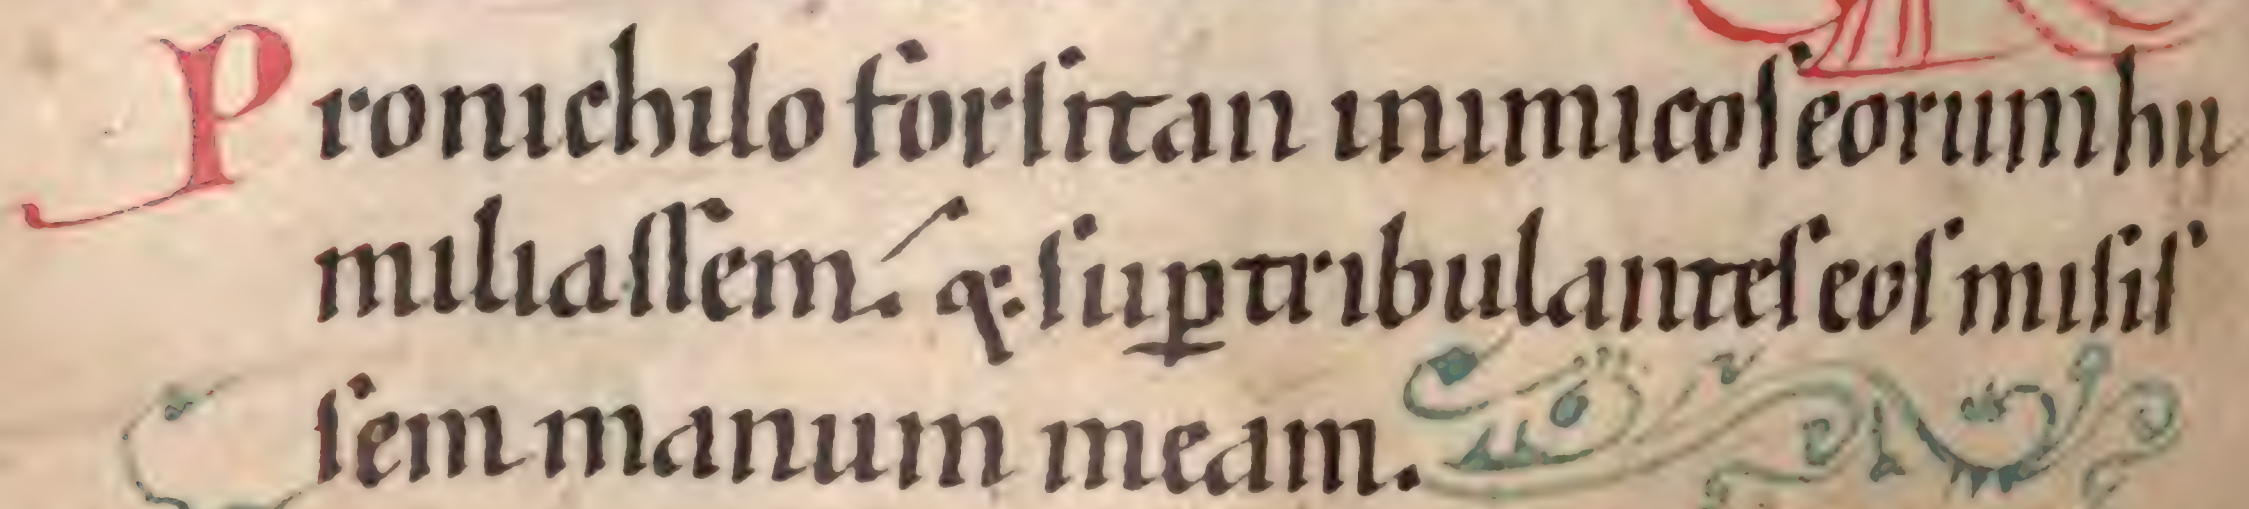 Pronichilo forſitan inimicoſ eorum hu
miliaſſem. &ꝗ: ſuꝑ tribulanteſ eoſ miſiſ
ſem manum meam.